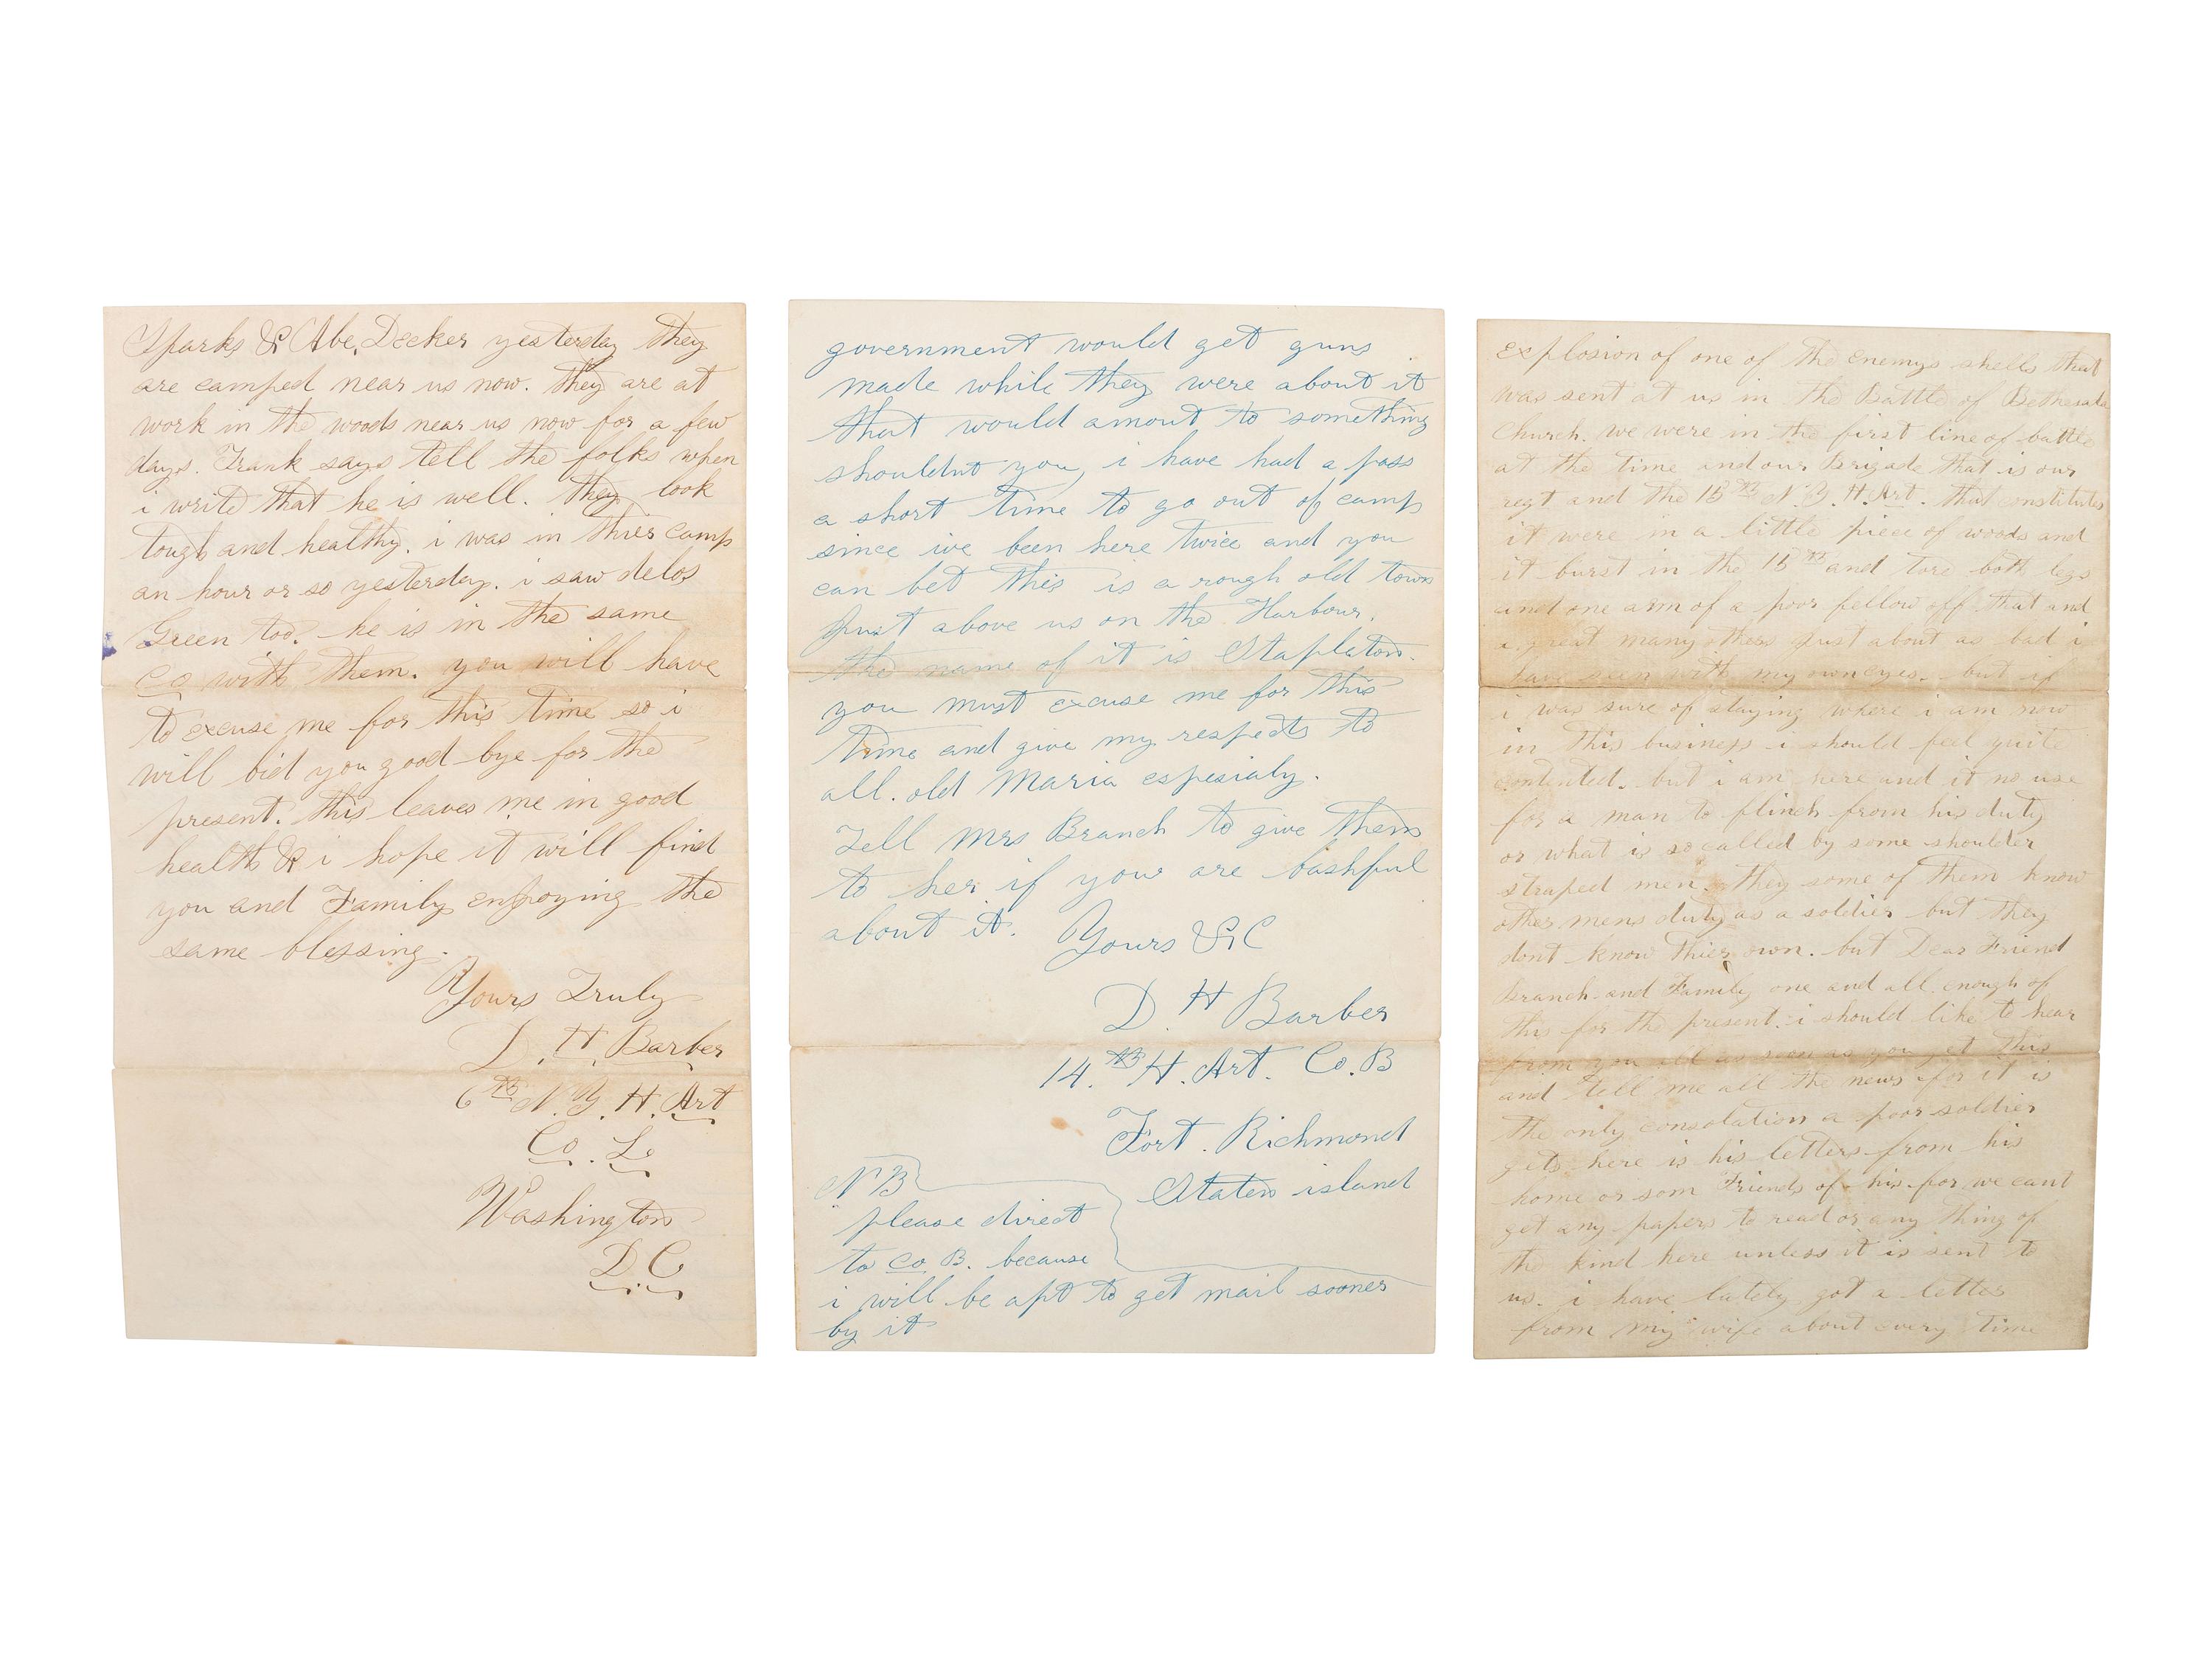 Sparks & Abe. Decker yesterday they
are camped near us now. they are at
work in the woods near us now for a few
days. Frank says tell the folks when
i write that he is well. they look
tough and healthy. i was in thier camp
an hour or so yesterday. i saw delos
Green too. he is in the same
Co with them. you will have
to excuse me for this time so i
will bid you good bye for the
present. this leaves me in good
health & i hope it will find
you and Family enjoying the
same blessing.
Yours Truly
D. H. Barber
6th N. Y. H. Art
Co. L.
Washington
D. C.
government would get guns
made while they were about it
that would amout to something
shouldnt you, i have had a pass
a short time to go out of camp
since ive been here twice and you
can bet this is a rough old town
just above us on the Harbour.
the name of it is Stapleton.
you must excuse me for this
time and give my respects to
all. old Maria espesialy.
Tell Mrs Branch to give them
to her if your are bashful
about it. Yours &C
D. H Barber
14.th H. Art. Co. B
Fort. Richmond
Staten island
NB
please direct
to Co B. because
i will be apt to get mail sooner
by it
explosion of one of the enemys shells that
was sent at us in the Battle of Bethesda
Church. we were in the first line of battle
at the time and our Brigade that is our
regt and the 15th N. Y. H. Art. that constitutes
it were in a little piece of woods and
it burst in the 15th and tore both legs
and one arm of a poor fellow off. that and
a great many others just about as bad i
have seen with my own eyes. but if
i was sure of staying where i am now
in this business i should feel quite
contented. but i am here and it no use
for a man to flinch from his duty
or what is so called by some shoulder
straped men. they some of them know
other mens duty as a soldier but they
dont know thier own. but Dear Friend
Branch and Family one and all enough of
this for the present. i should like to hear
from you all as soon as you get this
and tell me all the news for it is
the only consolation a poor soldier
gets here is his letters from his
home or som Friends of his for we cant
get any papers to read or any thing of
the kind here unless it is sent to
us. i have lately got a letter
from my wife about every time